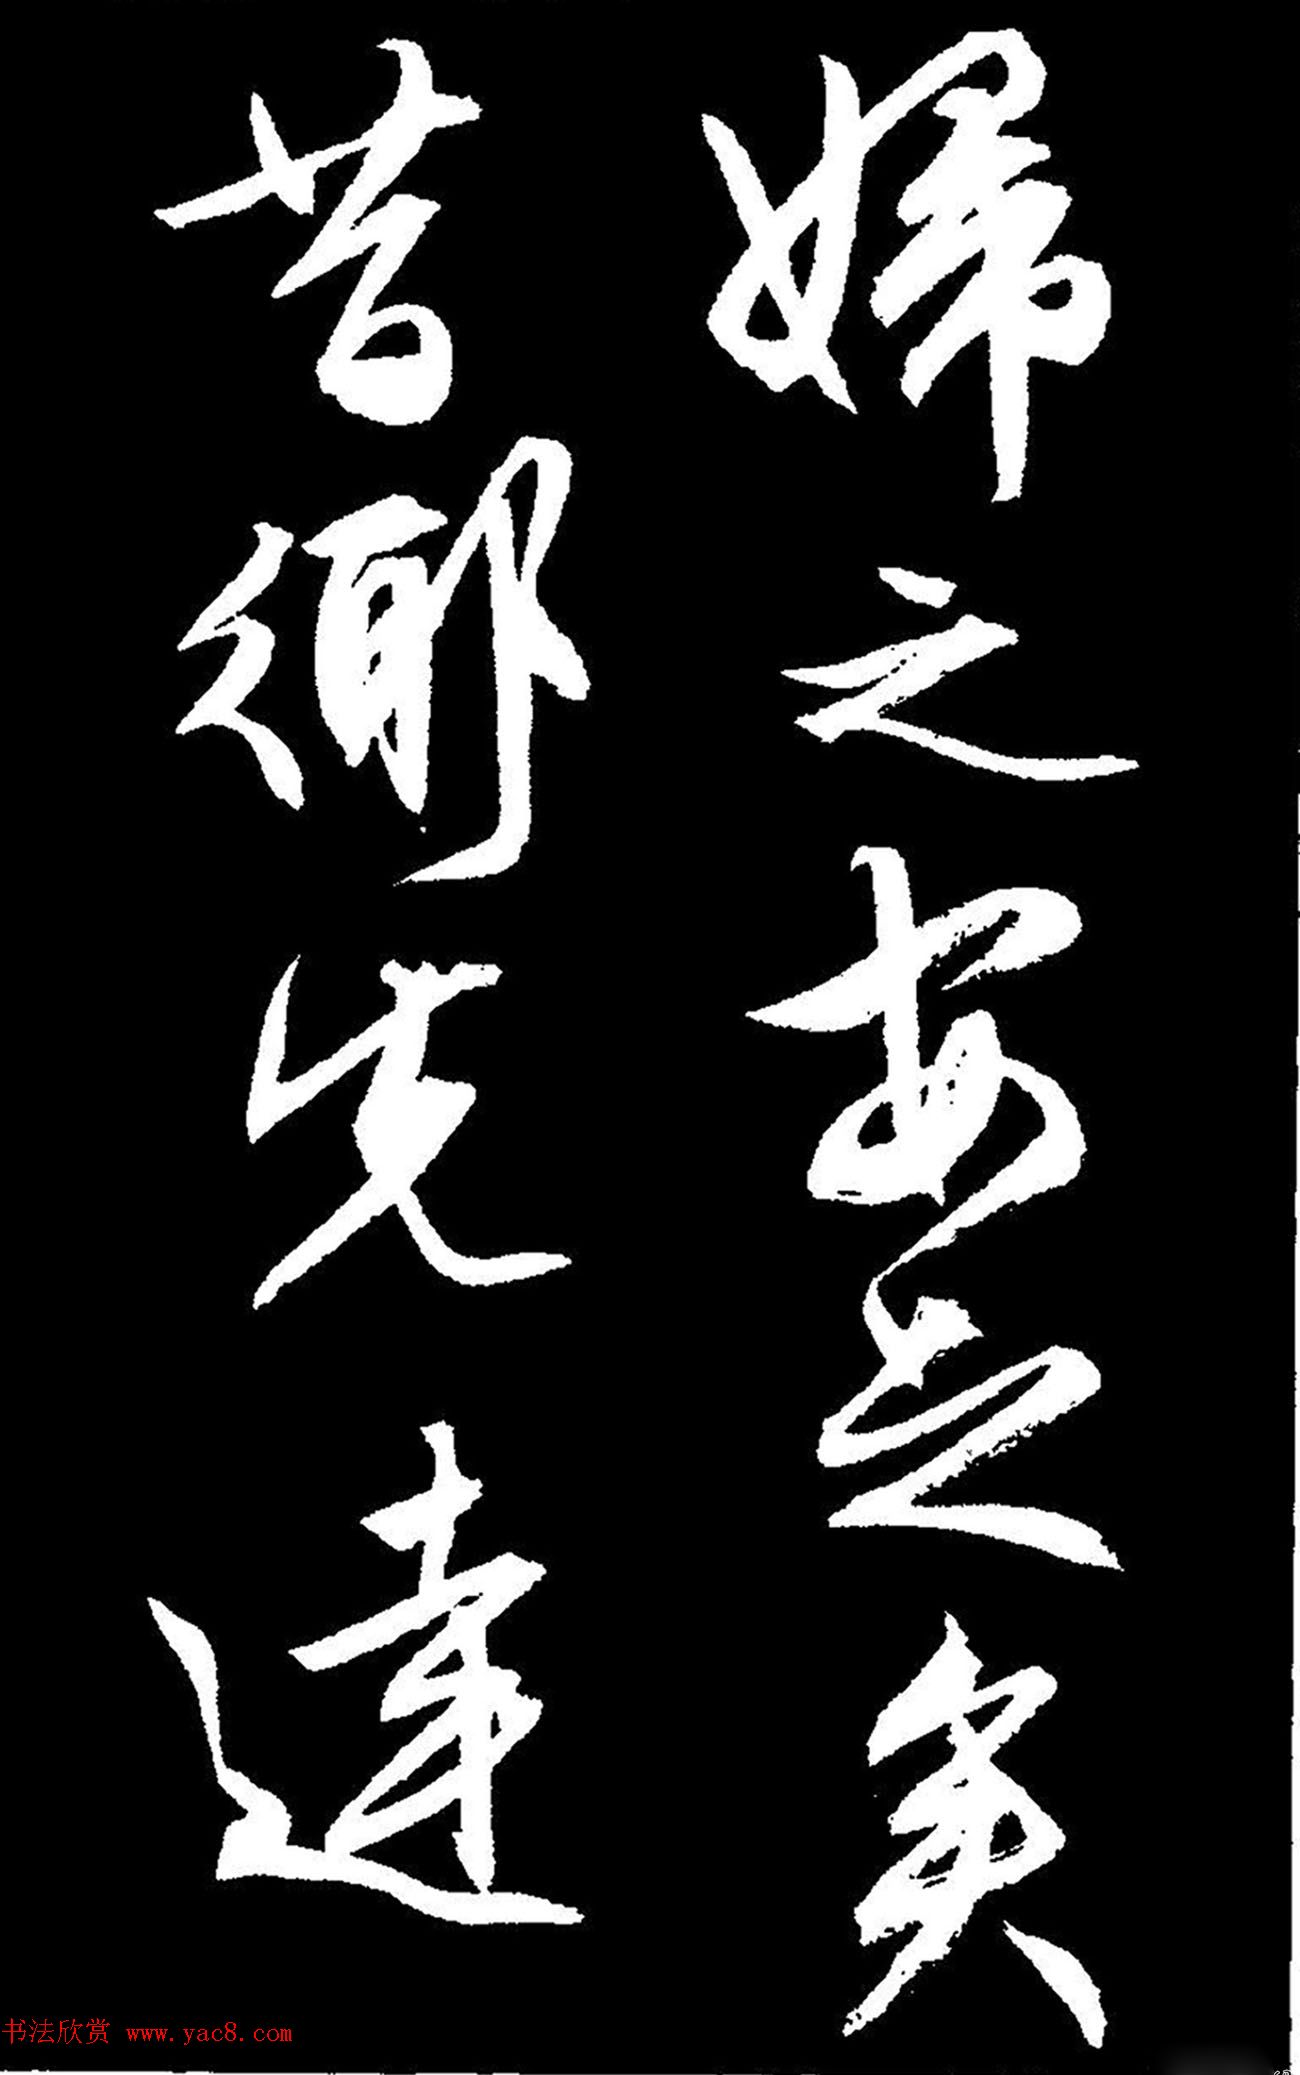 婦之安足矣
昔鄉先達
书法欣赏 www.yac8.com